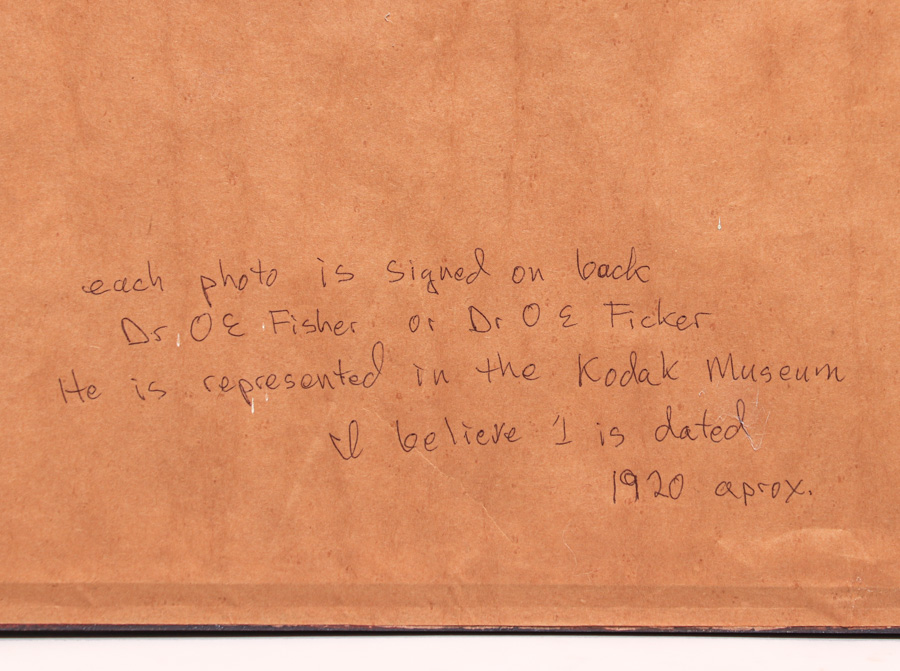 each photo is signed on back
Dr. O E Fisher or Dr O E Ficker
He is represented in the Kodak Museum
I believe 1 is dated
1920 aprox.